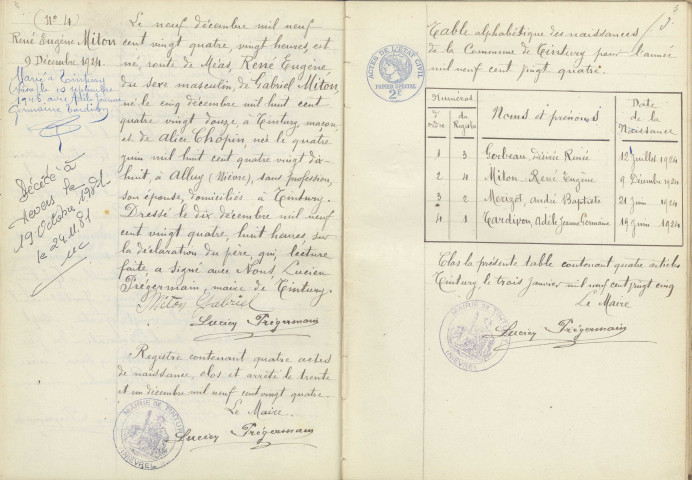 (No 4)
René Eugène Miton
9 Décembre 1924
Marié à Tintury
(Nièvre) le 10 septembre
1946, avec Adèle Jeanne
Germaine Tardivon
Décédé à
Nevers le
19 Octobre 1981
le 24.11.81
Le neuf décembre mil neuf
cent vingt quatre, vingt heures, est
né, route de Méas, René Eugène
du sexe masculin, de Gabriel Miton,
né le cinq décembre mil huit cent
quatre vingt douze à Tintury, maçon
et de Alice Chopin, née le quatre
juin mil huit cent quatre vingt dix
huit, à Alluy (Nièvre), sans profession,
son épouse, domiciliés à Tintury.
Dressé le dix décembre mil neuf
cent vingt quatre, huit heures, sur
la déclaration du père, qui, lecture
faite, a signé avec Nous, Lucien
Prégermain, maire de Tintury.
Miton Gabriel
Lucien Prégermain
Registre contenant quatre actes
de naissance, clos et arrêté le trente
et un décembre mil neuf cent vingt quatre.
Le Maire.
MAIRIE DE TINTURY
(NIÈVRE)
Lucien Prégermain
3
ACTES DE L'ETAT CIVIL
PAPIER SPÉCIAL
2F
Table alphabétique des naissances
de la Commune de Tintury pour l'année
mil neuf cent vingt quatre.
Numéros
d'ordre du Registre Noms et prénoms Date de la Naissance
1 3 Godeau, désirée Renée 12 Juillet 1924
2 4 Miton, René Eugène 9 Décembre 1924
3 2 Merizot, André Baptiste 21 juin 1924
4 1 Tardivon, Adèle Jeanne Germaine 19 Juin 1924
Clos la présente table contenant quatre articles
Tintury le trois janvier mil neuf cent vingt cinq
Le Maire
MAIRIE DE TINTURY
(NIÈVRE)
Lucien Prégermain